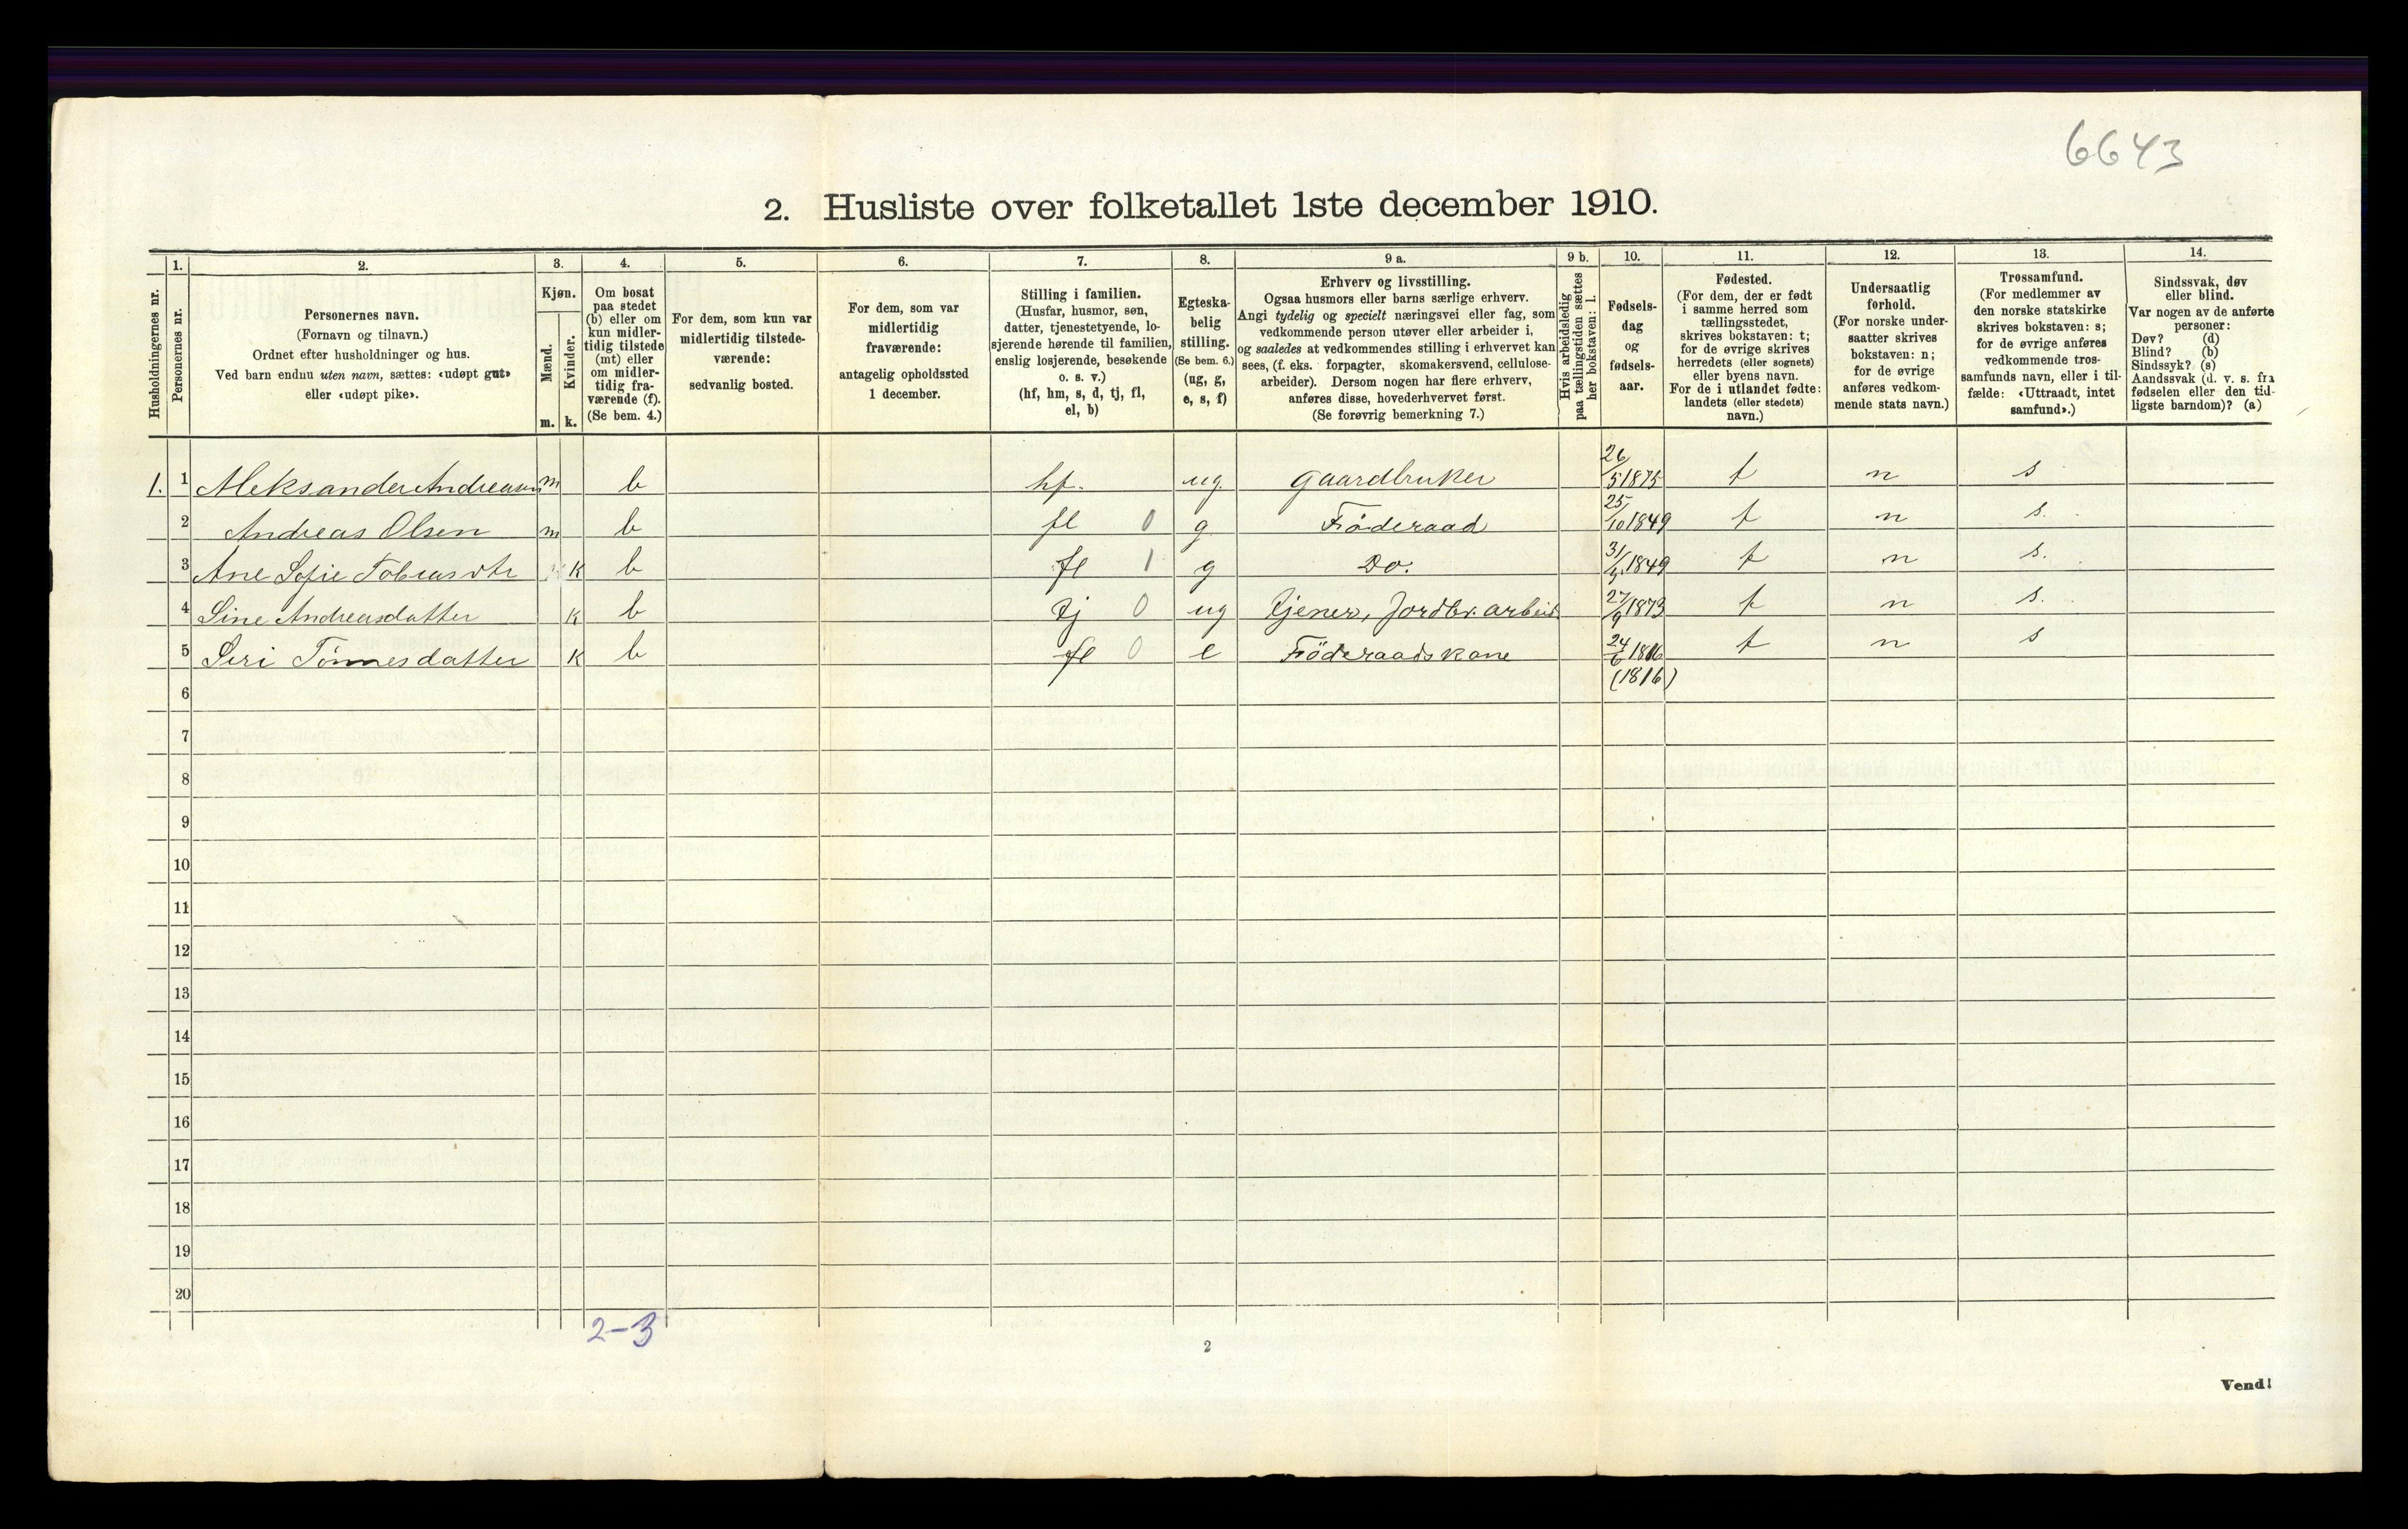 6643
2. Husliste over folketallet 1ste december 1910.
Husholdningernes nr.
1.
Personernes nr.
2.
Personernes navn.
(Fornavn og tilnavn.)
Ordnet efter husholdninger og hus.
Ved barn endnu uten navn, sættes: «udøpt gut»
eller «udøpt pike».
3.
Kjøn.
Mænd.
Kvinder.
m. k.
4.
Om bosat
paa stedet
(b) eller om
kun midler-
tidig tilstede
(mt) eller
om midler-
tidig fra-
værende (f).
(Se bem. 4.)
5.
For dem, som kun var
midlertidig tilstede-
værende:
sedvanlig bosted.
6.
For dem, som var
midlertidig
fraværende:
antagelig opholdssted
1 december.
7.
Stilling i familien.
(Husfar, husmor, søn,
datter, tjenestetyende, lo-
sjerende hørende til familien,
enslig losjerende, besøkende
o. s. v.)
(hf, hm, s, d, tj, fl,
el, b)
8.
Egteska-
belig
stilling.
(Se bem. 6.)
(ug, g,
e, s, f)
9 a.
Erhverv og livsstilling.
Ogsaa husmors eller barns særlige erhverv.
Angi tydelig og specielt næringsvei eller fag, som
vedkommende person utøver eller arbeider i,
og saaledes at vedkommendes stilling i erhvervet kan
sees, (f. eks. forpagter, skomakersvend, cellulose-
arbeider). Dersom nogen har flere erhverv,
anføres disse, hovederhvervet først.
(Se forøvrig bemerkning 7.)
9 b.
Hvis arbeidsledig
paa tællingstiden sættes
her bokstaven: l.
10.
Fødsels-
dag
og
fødsels-
aar.
11.
Fødested.
(For dem, der er født
i samme herred som
tællingsstedet,
skrives bokstaven: t;
for de øvrige skrives
herredets (eller sognets)
eller byens navn.
For de i utlandet fødte:
landets (eller stedets)
navn.)
12.
Undersaatlig
forhold.
(For norske under-
saatter skrives
bokstaven: n;
for de øvrige
anføres vedkom-
mende stats navn.)
13.
Trossamfund.
(For medlemmer av
den norske statskirke
skrives bokstaven: s;
for de øvrige anføres
vedkommende tros-
samfunds navn, eller i til-
fælde: «Uttraadt, intet
samfund».)
14.
Sindssvak, døv
eller blind.
Var nogen av de anførte
personer:
Døv? (d)
Blind? (b)
Sindssyk? (s)
Aandssvak (d. v. s. fra
fødselen eller den tid-
ligste barndom)? (a)
1. 1 Aleksander Andreasen m b hf. ug. gaardbruker 26/5 1875 t n s
2 Andreas Olsen m b fl 0 g Föderaad 25/10 1849 t n s.
3 Ane Sofie Tobiasdtr k b fl 1 g Do. 31/ 1849 t n s.
4 Sine Andreasdatter k b tj 0 ug tjener, Jordbr. arbeid 27/9 1873 t n s.
5 Siri Tönnesdatter k b fl 0 e Föderaadskone 24/6 1816 t n s
6 (1816)
7
8
9
10
11
12
13
14
15
16
17
18
19
20
2-3
2
Vend!